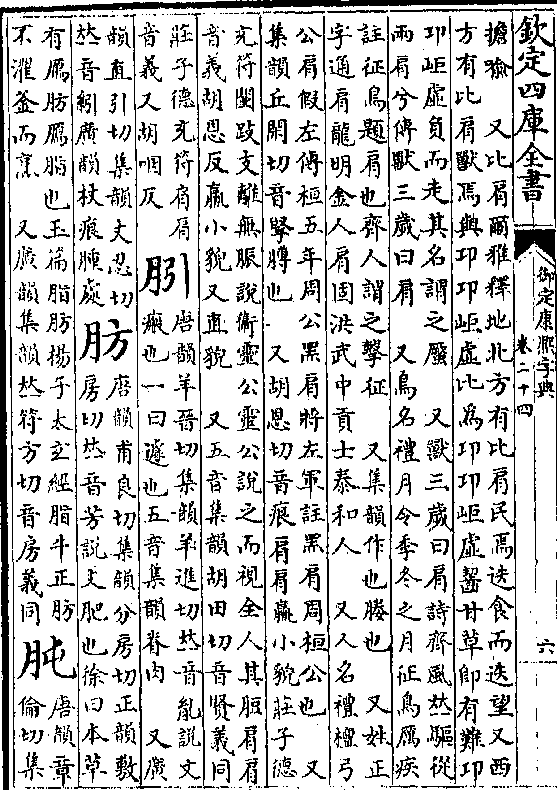 欽定四庫全書
御定康熙字典
卷二十四
六
擔喻　又比肩爾雅釋地北方有比肩民焉迭食而迭望又西
方有比肩獸焉與邛邛岠虛比為邛邛岠虛齧甘草卽有難邛
邛岠虛負而走其名謂之蹷　又獸三歲曰肩詩齊風竝驅從
兩肩兮傳獸三歲曰肩　又鳥名禮月令季冬之月征鳥厲疾
註征鳥題肩也齊人謂之擊征　又集韻作也勝也　又姓正
字通肩龍明金人肩固洪武中貢士泰和人　又人名禮檀弓
公肩假左傳桓五年周公黑肩將左軍註黑肩周桓公也　又
集韻丘閑切音堅膞也　又胡恩切音痕肩肩羸小貌莊子德
充符闉跂支離無脤說衞靈公靈公說之而視全人其脰肩肩
音義胡恩反羸小貌又直貌　又五音集韻胡田切音賢義同
莊子德充符肩肩
音義又胡咽反
肕唐韻羊晉切集韻羊進切竝音胤說文
瘢也一曰遽也五音集韻脊肉　又廣
韻直引切集韻丈忍切
竝音紖廣韻杖痕腫處
肪唐韻甫良切集韻分房切正韻敷
房切竝音芳說文肥也徐曰本草
有鴈肪鴈脂也玉篇脂肪楊子太玄經脂牛正肪
不濯釜而烹　又廣韻集韻竝符方切音房義同
肫唐韻章
倫切集